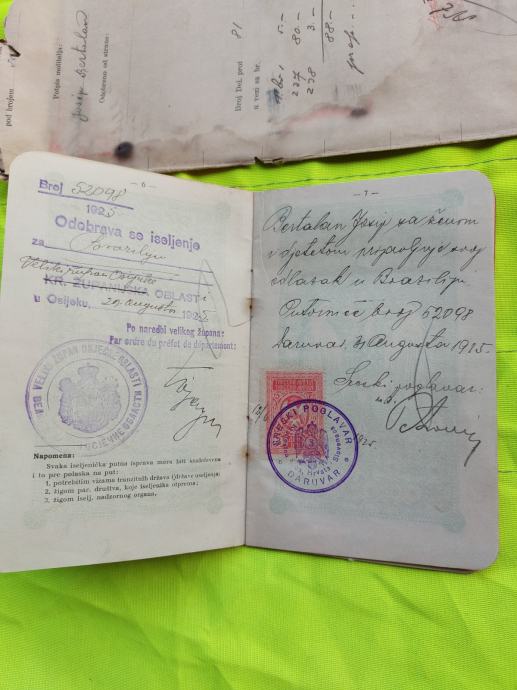 pod brojem
Potpis molitelja:
Josip Bertalan
Odobreno od strane:
Broj Del. prot 81
u vezi sa br.
5.-
237 80.-
238 3.-
88.-
— 6 —
Broj 52098
1925
Odobrava se iseljenje
za Braziliju
Veliki župan Osječke
KR. ŽUPANIJSKA OBLASTI
u Osijeku, 29 augusta 1925
Po naredbi velikog župana:
Par ordre du préfet de département:
VELIKI ŽUPAN OSJEČKE OBLASTI
Napomena:
Svaka iseljenička putna isprava mora biti snabdevena
i to pre polaska na put:
1. potrebitim vizama tranzitnih država (države useljenja)
2. žigom par. društva, koje iseljenika otprema;
3. žigom iselj. nadzornog organa.
— 7 —
Bertalan Josip sa ženom
i djetetom prijavljuje svoj
odlazak u Braziliju
Putovnice broj 52098
Daruvar, 31 Augusta 1925.
Sreski poglavar:
SRESKI POGLAVAR
DARUVAR
1925